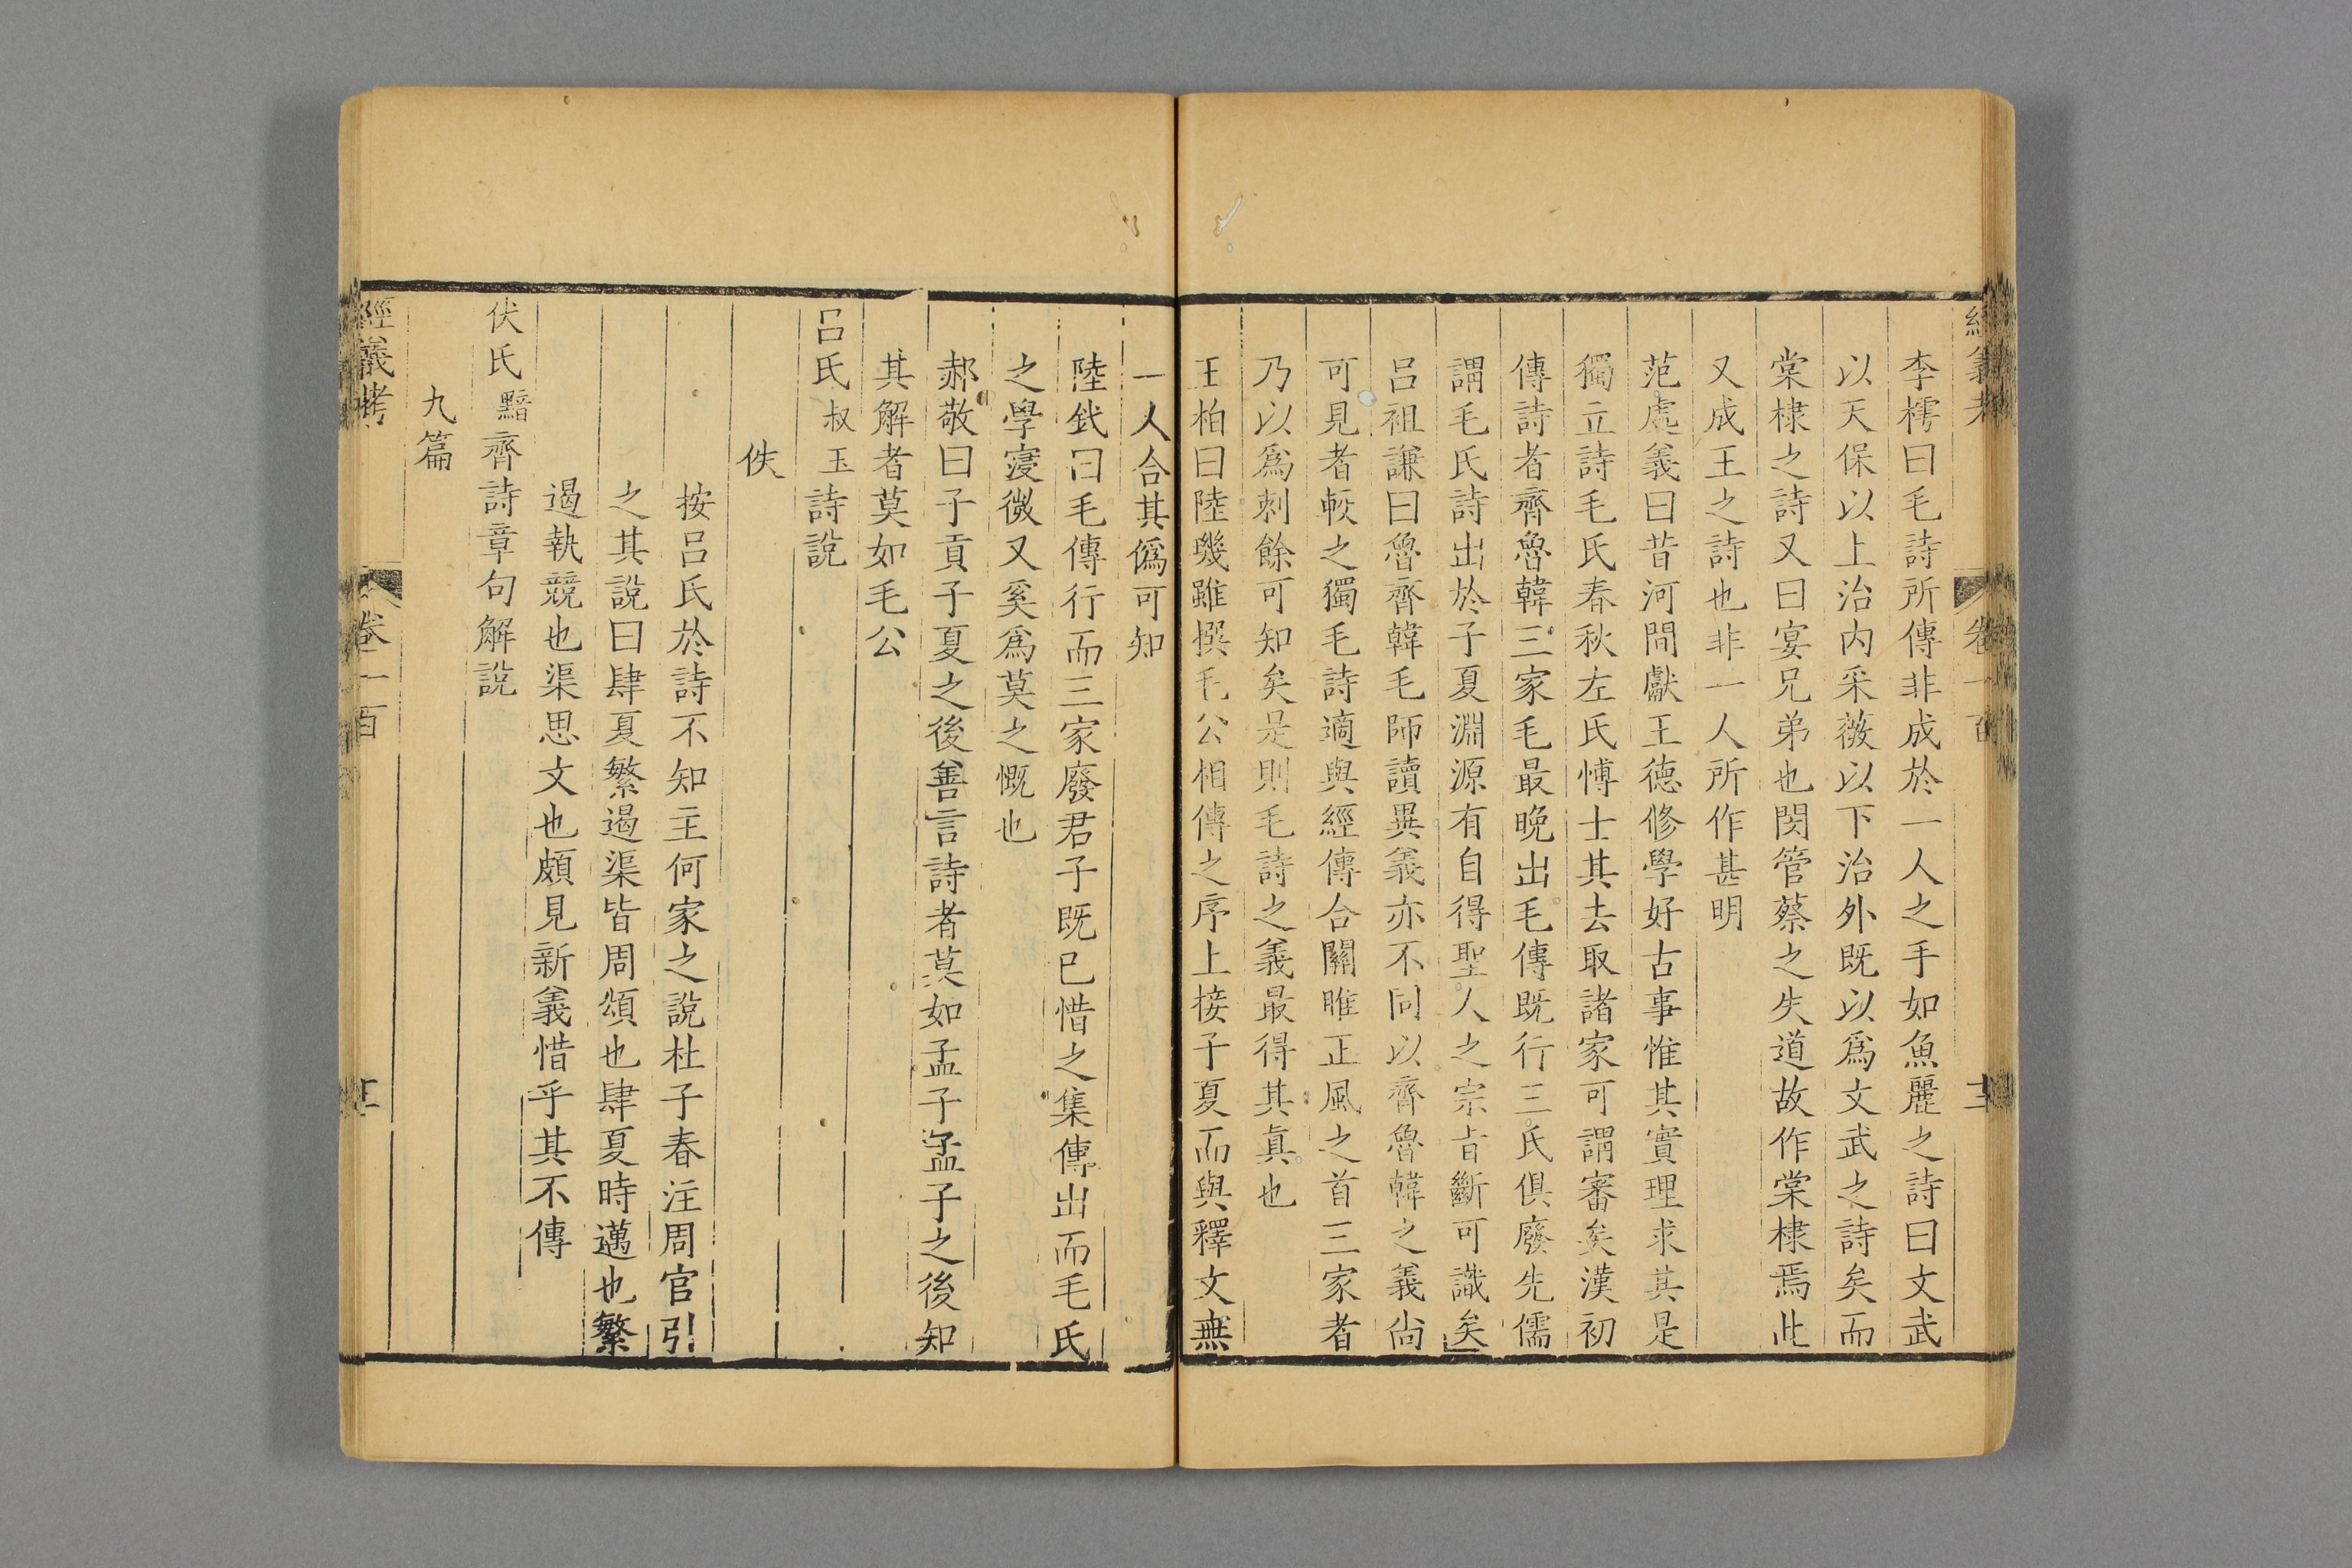 經義考
卷一百
李樗曰毛詩所傳非成於一人之手如魚麗之詩曰文武
以天保以上治内采薇以下治外既以爲文武之詩矣而
棠棣之詩又曰宴兄弟也閔管蔡之失道故作棠棣焉此
又成王之詩也非一人所作甚明
范處義曰昔河間獻王德修學好古事惟其實理求其是
獨立詩毛氏春秋左氏博士其去取諸家可謂審矣漢初
傳詩者齊魯韓三家毛最晚出毛傳既行三氏俱廢先儒
謂毛氏詩出於子夏淵源有自得聖人之宗旨斷可識矣
呂祖謙曰魯齊韓毛師讀異義亦不同以齊魯韓之義尚
可見者較之獨毛詩適與經傳合關雎正風之首三家者
乃以爲刺餘可知矣是則毛詩之義最得其眞也
王柏曰陸璣雖撰毛公相傳之序上接子夏而與釋文無
一人合其僞可知
陸釴曰毛傳行而三家廢君子既已惜之集傳出而毛氏
之學寖微又奚爲莫之慨也
郝敬曰子貢子夏之後善言詩者莫如孟子孟子之後知
其解者莫如毛公
呂氏叔玉詩說
佚
按呂氏於詩不知主何家之說杜子春注周官引
之其說曰肆夏繁遏渠皆周頌也肆夏時邁也繁
遏執競也渠思文也頗見新義惜乎其不傳
伏氏黯齊詩章句解說
九篇
經義考
卷一百